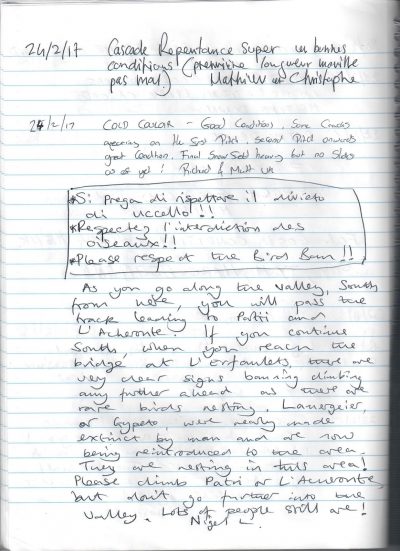 24/2/17 Cascade Repentance Super en bonnes
conditions (première longueur mouille
pas mal.) Mathieu et Christophe
24/2/17 COLD COULOIR - Good Conditions, Some Cracks
appearing on the first Pitch, second Pitch onwards
great Condition. Final Snow heavy but no Slides
as of yet! Richard & Matt UK
*Si Prega di rispettare il divieto
di uccello!!!
*Respectez l'interdiction des
oiseaux!!
*Please respect the Bird Ban!!
As you go along the valley, South
from here, you will pass the
track leading to Patri and
L'Acheronte. If you continue
South, when you reach the
bridge at L'Erfaulets, there are
very clear signs banning climbing
any further ahead as there are
rare birds nesting. Lamergeier,
or Gypeto, were nearly made
extinct by man and are now
being reintroduced to the area.
They are nesting in this area!
Please climb Patri or L'Acheronte,
but don't go further into the
Valley. Lots of people still are!
Nigel L.